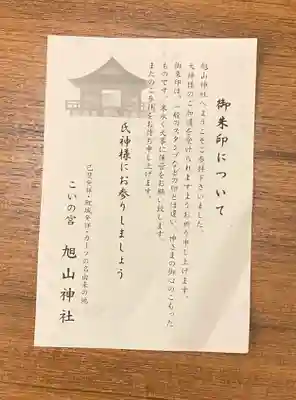 御朱印について
旭山神社へようこそご参拝下さいました。
大神様のご加護を受けられますようお祈り申し上げます。
御朱印は、一般のスタンプなどの印とは違い、神さまの御心のこもった
ものです。末永く大事に保管をお願い致します。
またのご参拝をお待ち申し上げます。
氏神様にお参りしましょう
己斐発祥・敢城発祥・カープの名由来の地
こいの宮 旭山神社